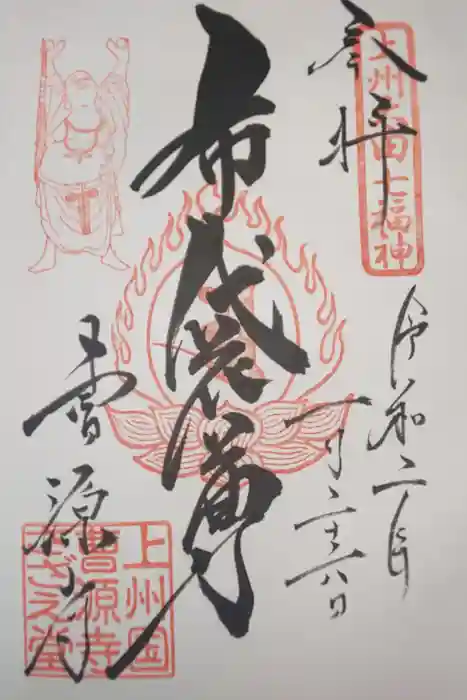 奉拝
上州太田七福神
令和二年
一月二十八日
布袋尊
曹源寺
上州
曹源寺
さざえ堂